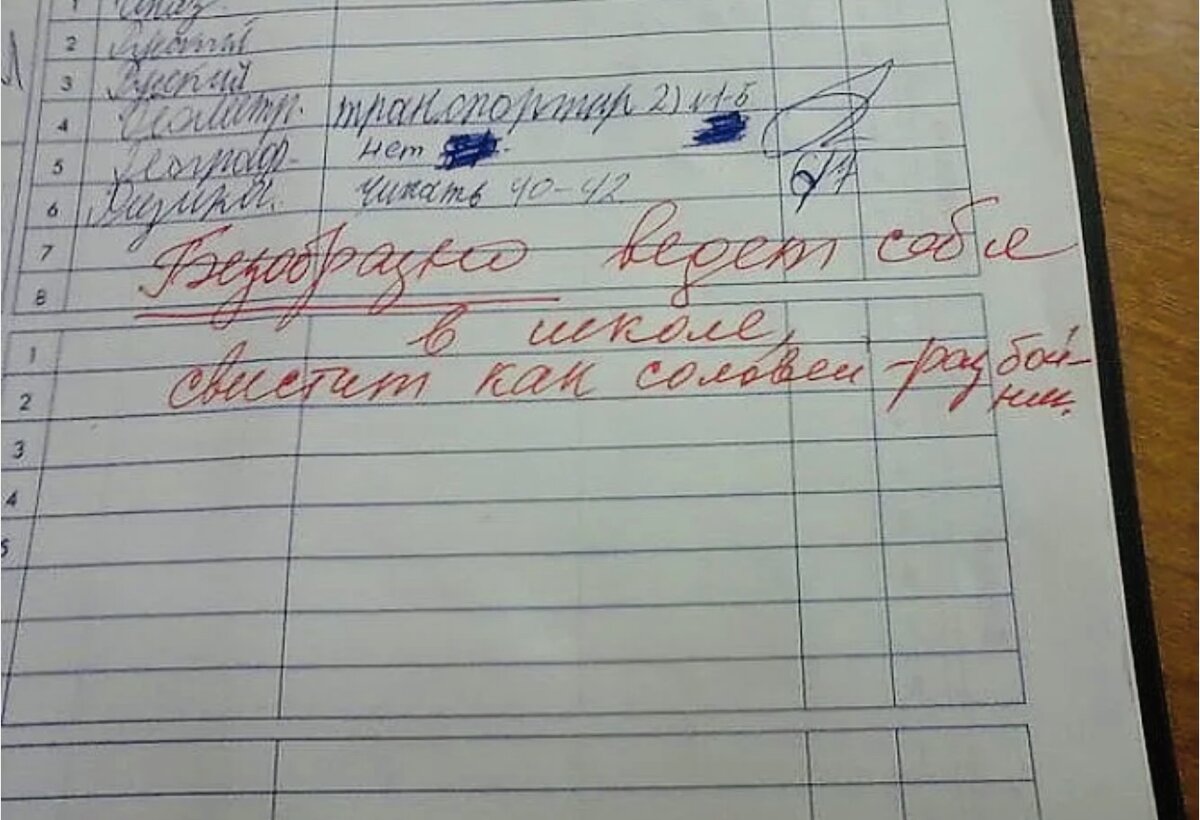 1
2
3 Русский
4 Геометр. транспортир 2) 1-5
5 Географ. нет
6 Физика. Читать 40-42
7 Безобразно ведет себя
8
в школе,
1
свистит как соловей -разбой-
2 ник.
3
4
5